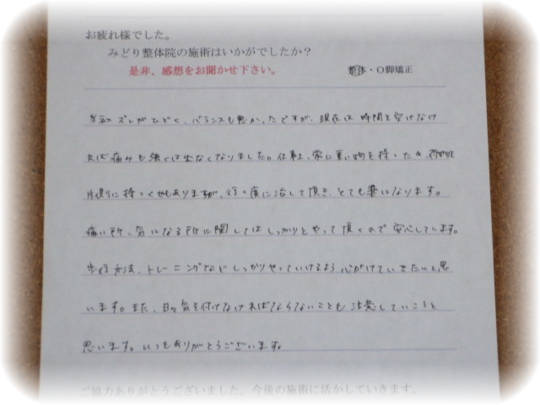 お疲れ様でした。
みどり整体院の施術はいかがでしたか？
是非、感想をお聞かせ下さい。
整体・O脚矯正
ズレがひどく、バランスも悪かったですが、現在は時間を空けなけ
れば痛みも強くは出なくなりました。仕事上、常に重い物を持ったり、
片側に持つくせもありますが、行く度に治して頂き、とても楽になります。
痛い所、気になる所に関してはしっかりとやって頂くので安心しています。
歩行方法、トレーニングなどしっかりやっていけるよう心がけていきたいと思
います。また、日々気を付けなければならないことも注意していこうと
思います。いつもありがとうございます。
ご協力ありがとうございました。今後の施術に活かしていきます。